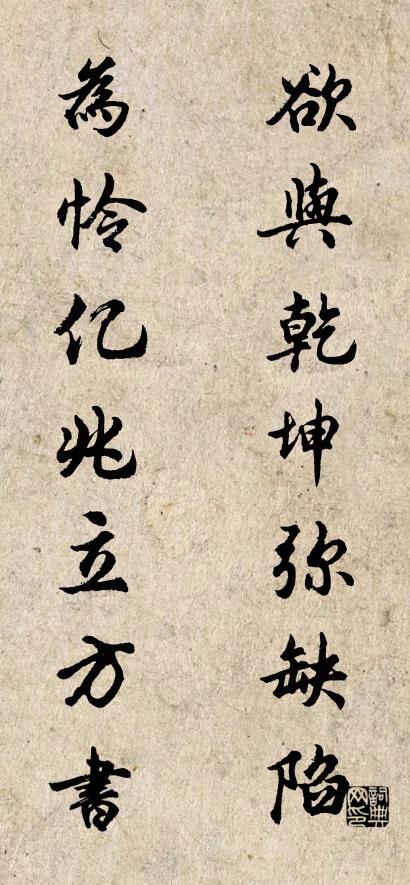 欲與乾坤弥缺陷
為怜亿兆立方書
詞典網印